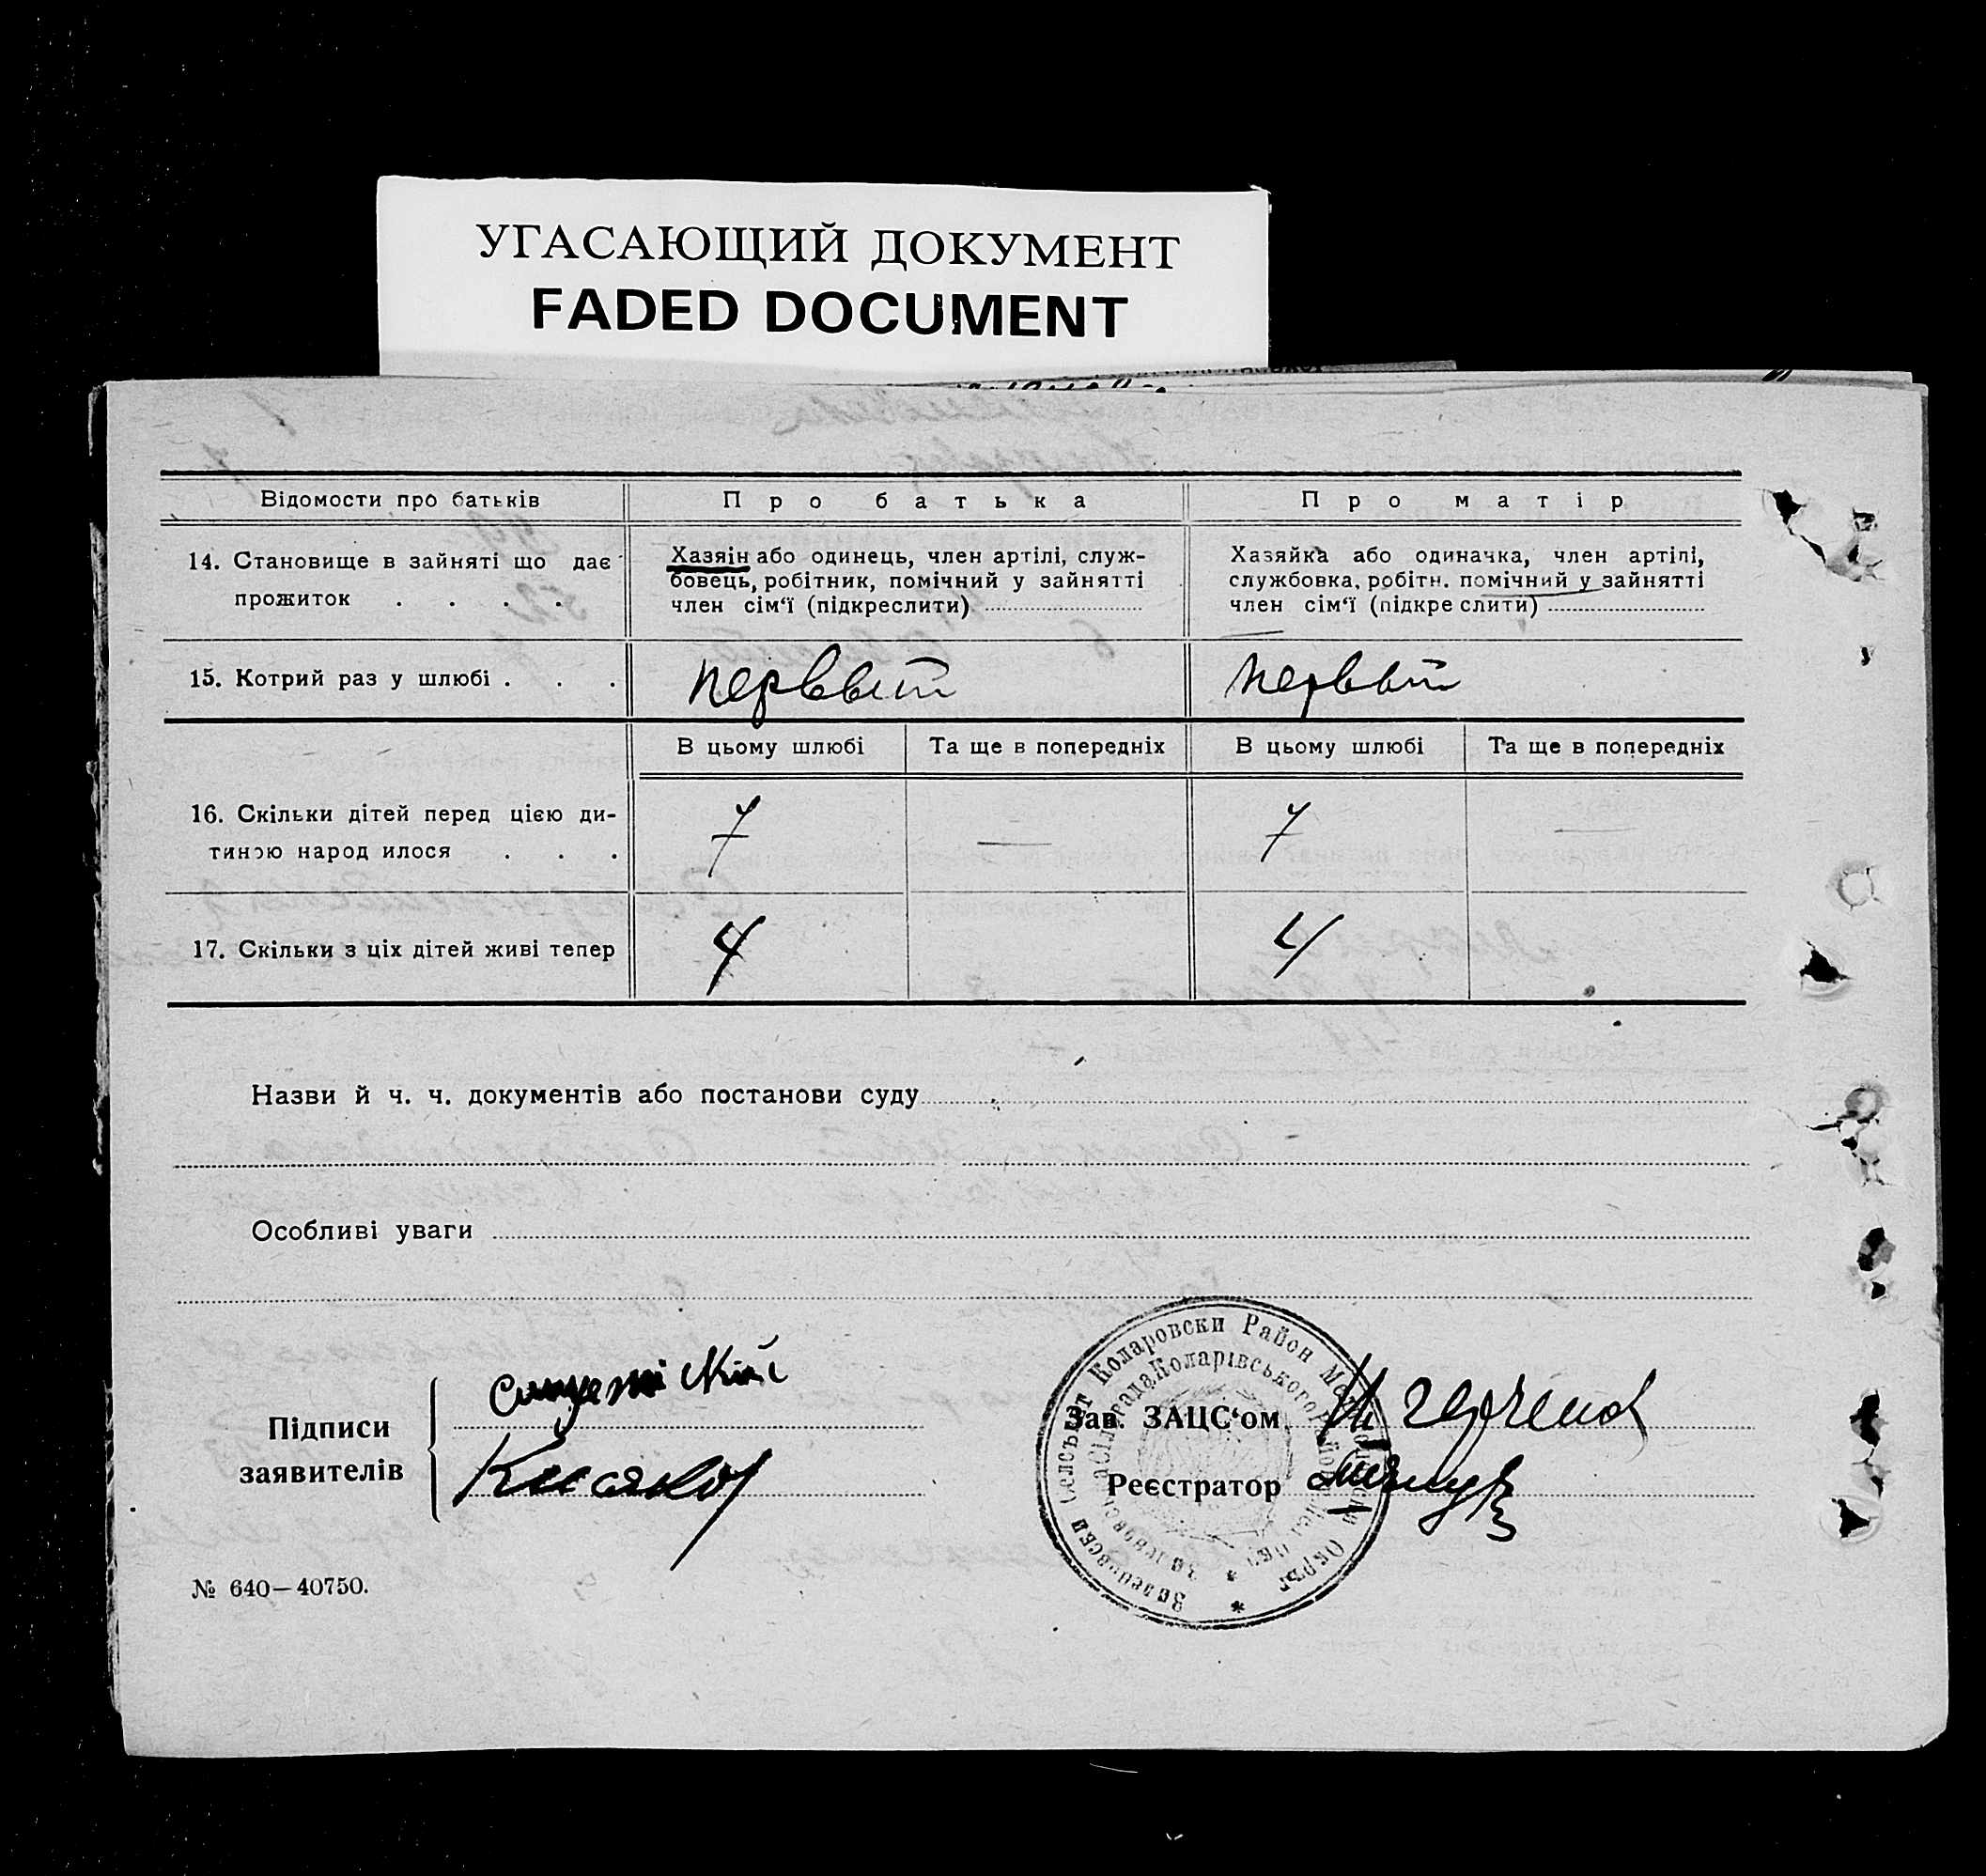 УГАСАЮЩИЙ ДОКУМЕНТ
FADED DOCUMENT
Відомости про батьків
Про батька
Про матір
14. Становище в зайняті що дає
прожиток . . . .
Хазяін або одинець, член артілі, служ-
бовець, робітник, помічний у зайнятті
член сім‘ї (підкреслити)
Хазяйка або одиначка, член артілі,
службовка, робітн. помічний у зайнятті
член сім‘ї (підкре слити)
15. Котрий раз у шлюбі . . .
первый
первый
В цьому шлюбі
Та ще в попередніх
В цьому шлюбі
Та ще в попередніх
16. Скільки дітей перед цією ди-
тиною народ илося . . .
7
—
7
—
17. Скільки з ціх дітей живі тепер
4
4
Назви й ч. ч. документів або постанови суду
Особливі уваги
Підписи
заявителів
Зав. ЗАЦС‘ом
Реєстратор
Коларовски Район
Коларівського
№ 640—40750.